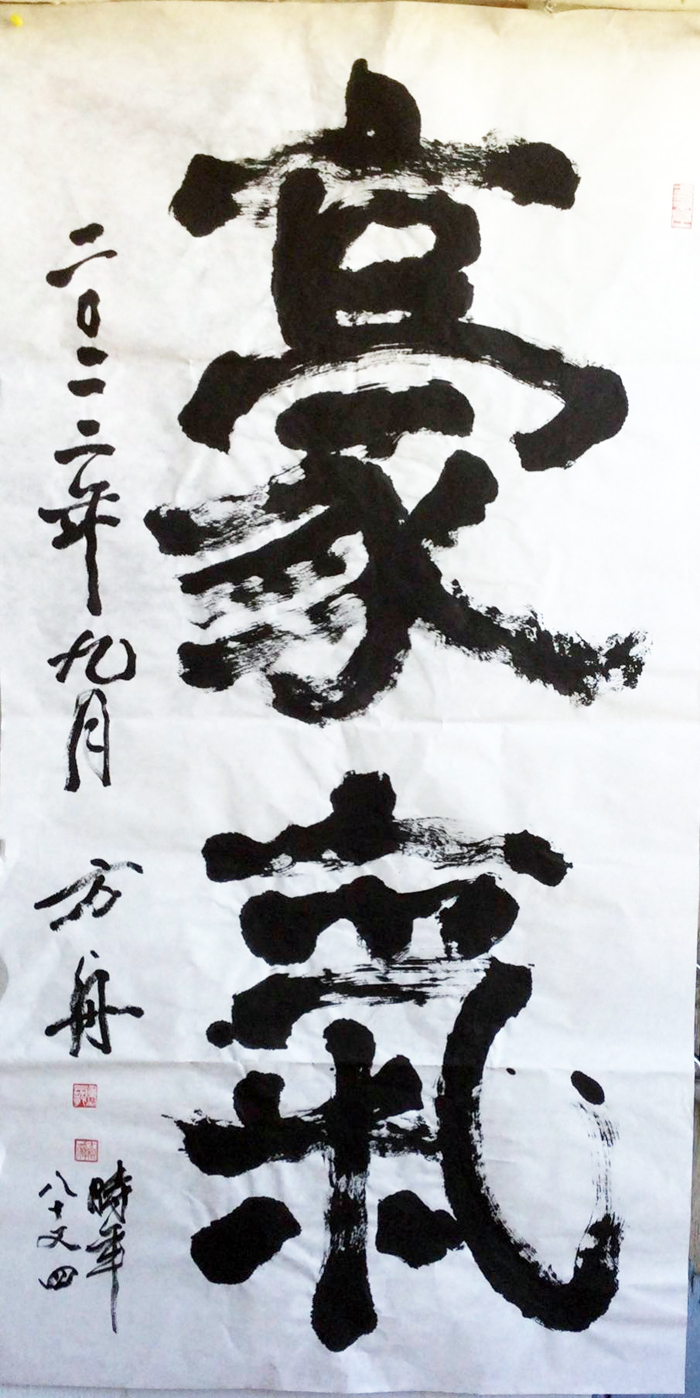 豪氣
二〇二二年九月 方舟
時年
八十又四